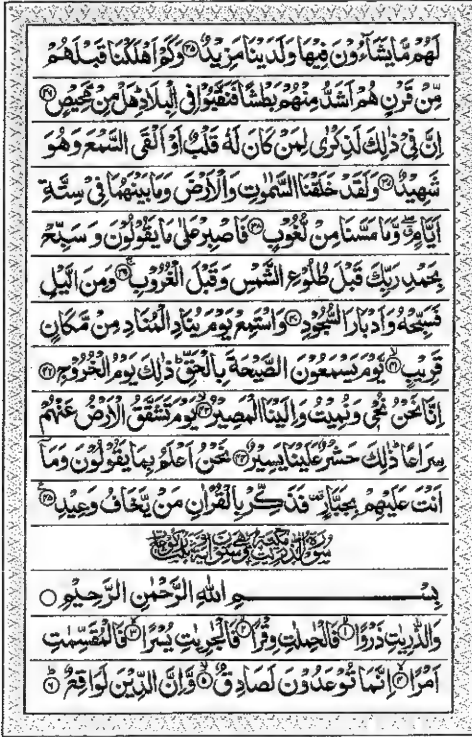 لَهُمْ مَّا يَشَآءُوْنَ فِيْهَا وَلَدَيْنَا مَزِيْدٌ ۝۳۵ وَكَمْ اَهْلَكْنَا قَبْلَهُمْ
مِّنْ قَرْنٍ هُمْ اَشَدُّ مِنْهُمْ بَطْشًا فَنَقَّبُوْا فِى الْبِلَادِ ؕ هَلْ مِنْ مَّحِيْصٍ ۝۳۶
اِنَّ فِىْ ذٰلِكَ لَذِكْرٰى لِمَنْ كَانَ لَهٗ قَلْبٌ اَوْ اَلْقَى السَّمْعَ وَهُوَ
شَهِيْدٌ ۝۳۷ وَلَقَدْ خَلَقْنَا السَّمٰوٰتِ وَالْاَرْضَ وَمَا بَيْنَهُمَا فِىْ سِتَّةِ
اَيَّامٍ ۖ وَّمَا مَسَّنَا مِنْ لُّغُوْبٍ ۝۳۸ فَاصْبِرْ عَلٰى مَا يَقُوْلُوْنَ وَسَبِّحْ
بِحَمْدِ رَبِّكَ قَبْلَ طُلُوْعِ الشَّمْسِ وَقَبْلَ الْغُرُوْبِ ۝۳۹ وَمِنَ الَّيْلِ
فَسَبِّحْهُ وَاَدْبَارَ السُّجُوْدِ ۝۴۰ وَاسْتَمِعْ يَوْمَ يُنَادِ الْمُنَادِ مِنْ مَّكَانٍ
قَرِيْبٍ ۝۴۱ يَّوْمَ يَسْمَعُوْنَ الصَّيْحَةَ بِالْحَقِّ ؕ ذٰلِكَ يَوْمُ الْخُرُوْجِ ۝۴۲
اِنَّا نَحْنُ نُحْىٖ وَنُمِيْتُ وَاِلَيْنَا الْمَصِيْرُ ۝۴۳ يَوْمَ تَشَقَّقُ الْاَرْضُ عَنْهُمْ
سِرَاعًا ؕ ذٰلِكَ حَشْرٌ عَلَيْنَا يَسِيْرٌ ۝۴۴ نَحْنُ اَعْلَمُ بِمَا يَقُوْلُوْنَ وَمَاۤ
اَنْتَ عَلَيْهِمْ بِجَبَّارٍ فَذَكِّرْ بِالْقُرْاٰنِ مَنْ يَّخَافُ وَعِيْدِ ۝۴۵
سُوْرَةُ الذّٰرِيٰتِ مَكِّيَّةٌ وَّهِىَ سِتُّوْنَ اٰيَةً
بِسْمِ اللهِ الرَّحْمٰنِ الرَّحِيْمِ ○
وَالذّٰرِيٰتِ ذَرْوًا ۝۱ فَالْحٰمِلٰتِ وِقْرًا ۝۲ فَالْجٰرِيٰتِ يُسْرًا ۝۳ فَالْمُقَسِّمٰتِ
اَمْرًا ۝۴ اِنَّمَا تُوْعَدُوْنَ لَصَادِقٌ ۝۵ وَّاِنَّ الدِّيْنَ لَوَاقِعٌ ۝۶